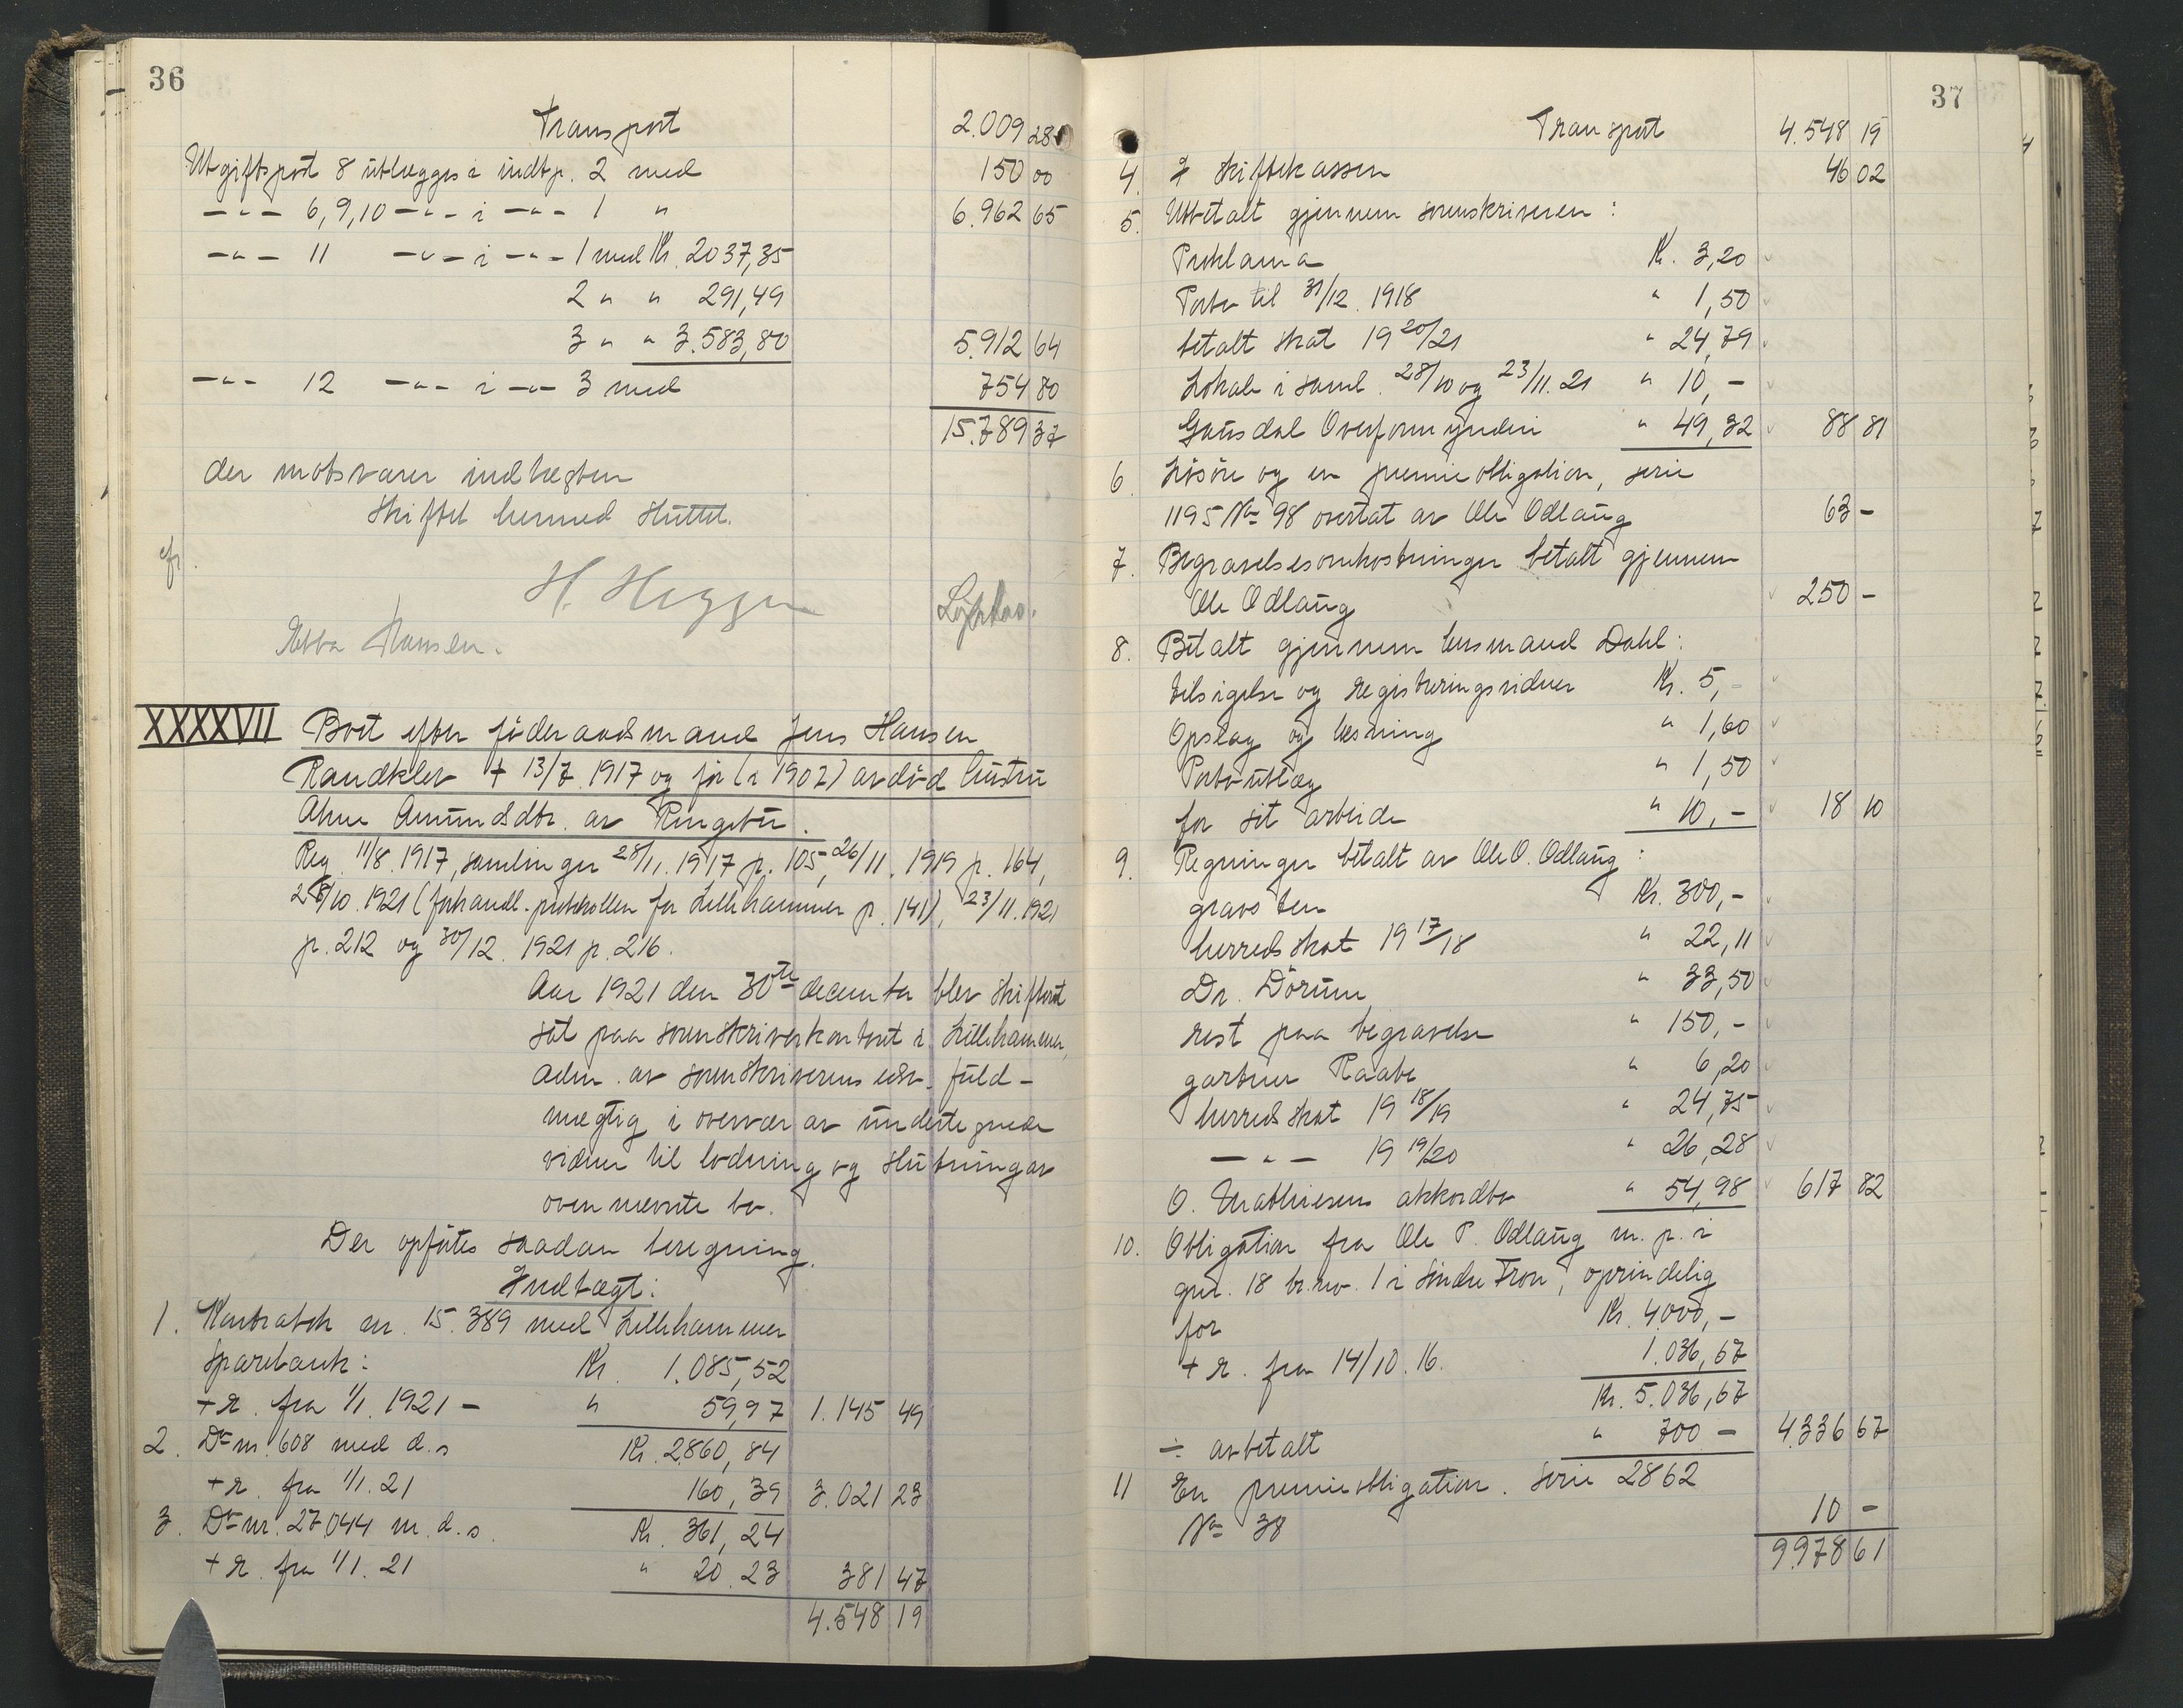 36
Transport 2.009 28
Utgiftspost 8 utlægges i indtp. 2 med 150 00
—"— 6,9,10 —"— i —"— 1 " 6.962 65
—"— 11 —"— i —"— 1 med Kr. 2037,35
2 " " 291,49
3 " " 3.583,80 5.912 64
—"— 12 —"— i —"— 3 med 754 80
15.789 37
der motsvarer indtægten
Skiftet hermed sluttet.
H. Heggen
Hansen.
XXXXVII Boet efter föderaadsmand Jens Hansen
Randklev + 13/7 1917 og før (i 1902) avdöd hustru
Ahne Amundsdtr. av Ringebu.
Reg. 11/8. 1917, samlinger 28/11. 1917 p. 105, 26/11. 1919 p. 164,
28/10. 1921 (forhandl. protokollen for Lillehammer p. 141), 23/11. 1921
p. 212 og 30/12. 1921 p. 216.
Aar 1921 den 30te december blev skifteret
sat paa sorenskriverkontoret i Lillehammer,
adm. av sorenskriverens edsv. fuld-
mægtig i overvær av undertegnede
vidner til lodning og slutning av
ovennævnte bo.
Der opførtes saadan beregning.
Indtægt:
1. Kontrabok nr. 15.389 med Lillehammer
Sparebank: Kr. 1.085,52
+ r. fra 1/1. 1921 — " 59,97 1.145 49
2. Do nr. 608 med d.s Kr. 2860,84
+ r. fra 1/1. 21 160,39 3.021 23
3. Do nr. 27.044 m. d. s. Kr. 361,24
+ r. fra 1/1. 21 " 20.23 381 47
4.548 19
37
Transport 4.548 19
4. I skiftekassen 46 02
5. Utbetalt gjennem sorenskriveren:
Proklama Kr. 3,20
Porto til 31/12. 1918 " 1,50
betalt skat 1920/21 " 24,79
Lokale i saml. 28/10 og 23/11. 21 " 10,—
Gausdal Overformynderi " 49,32 88 81
6. Lösöre og en premieobligation, serie
1195 No 98 overtat av Ole Odlaug 63 —
7. Begravelsesomkostninger betalt gjennem
Ole Odlaug 250 —
8. Betalt gjennem lensmand Dahl:
tilsigelse og registreringsvidner Kr. 5,—
Opslag og læsning " 1,60
Portoutlæg " 1,50
for sit arbeide " 10,— 18 10
9. Regninger betalt av Ole O. Odlaug:
gravsten Kr. 300,—
herredskat 1917/18 " 22,11
Dr. Dörum " 33,50
rest paa begravelse " 150,—
gartner Raabe " 6,20
herredskat 1918/19 " 24,75
—"— 1919/20 " 26,28
O. Mathiesens akkordbo " 54,98 617 82
10. Obligation fra Ole P. Odlaug m. p. i
gnr. 18 br.no. 1 i Söndre Fron, oprindelig
for Kr. 4.000,—
+ r. fra 14/10. 16. 1.036,67
Kr. 5.036,67
÷ avbetalt " 700 — 4.336 67
11 En premieobligation. Serie 2862
No 38 10 —
9.978 61